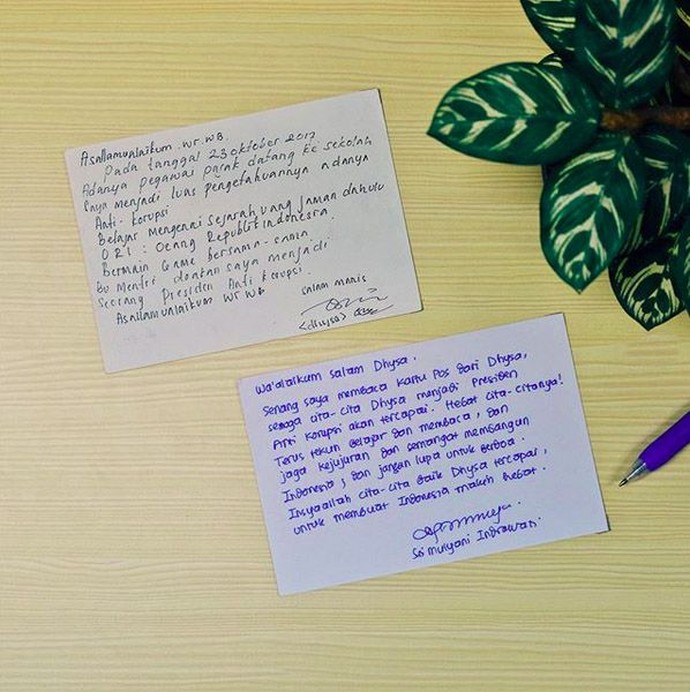 Asallamualaikum .wr.wB.
Pada tanggal 23 oktober 2017
Adanya pegawai pajak datang ke sekolah
saya menjadi luas pengetahuannya adanya
Anti-korupsi
Belajar mengenai sejarah uang jaman dahulu
ORI : Oeang Republik Indonesra.
Bermain Game bersama-sama.
Bu mentri doakan saya menjadi
seorang Presiden Anti korupsi.
Asallamualaikum wr wb
salam manis
<dhysa>
Wa'alaikum salam Dhysa.
Senang saya membaca kartu pos dari Dhysa,
semoga cita-cita Dhysa menjadi Presiden
Anti korupsi akan tercapai. Hebat cita-citanya!
Terus tekun belajar dan membaca, dan
jaga kejujuran dan semangat membangun
Indonesia; dan jangan lupa untuk berdoa.
Insyaallah cita-cita baik Dhysa tercapai,
untuk membuat Indonesia makin hebat.
Sri Mulyani Indrawati.